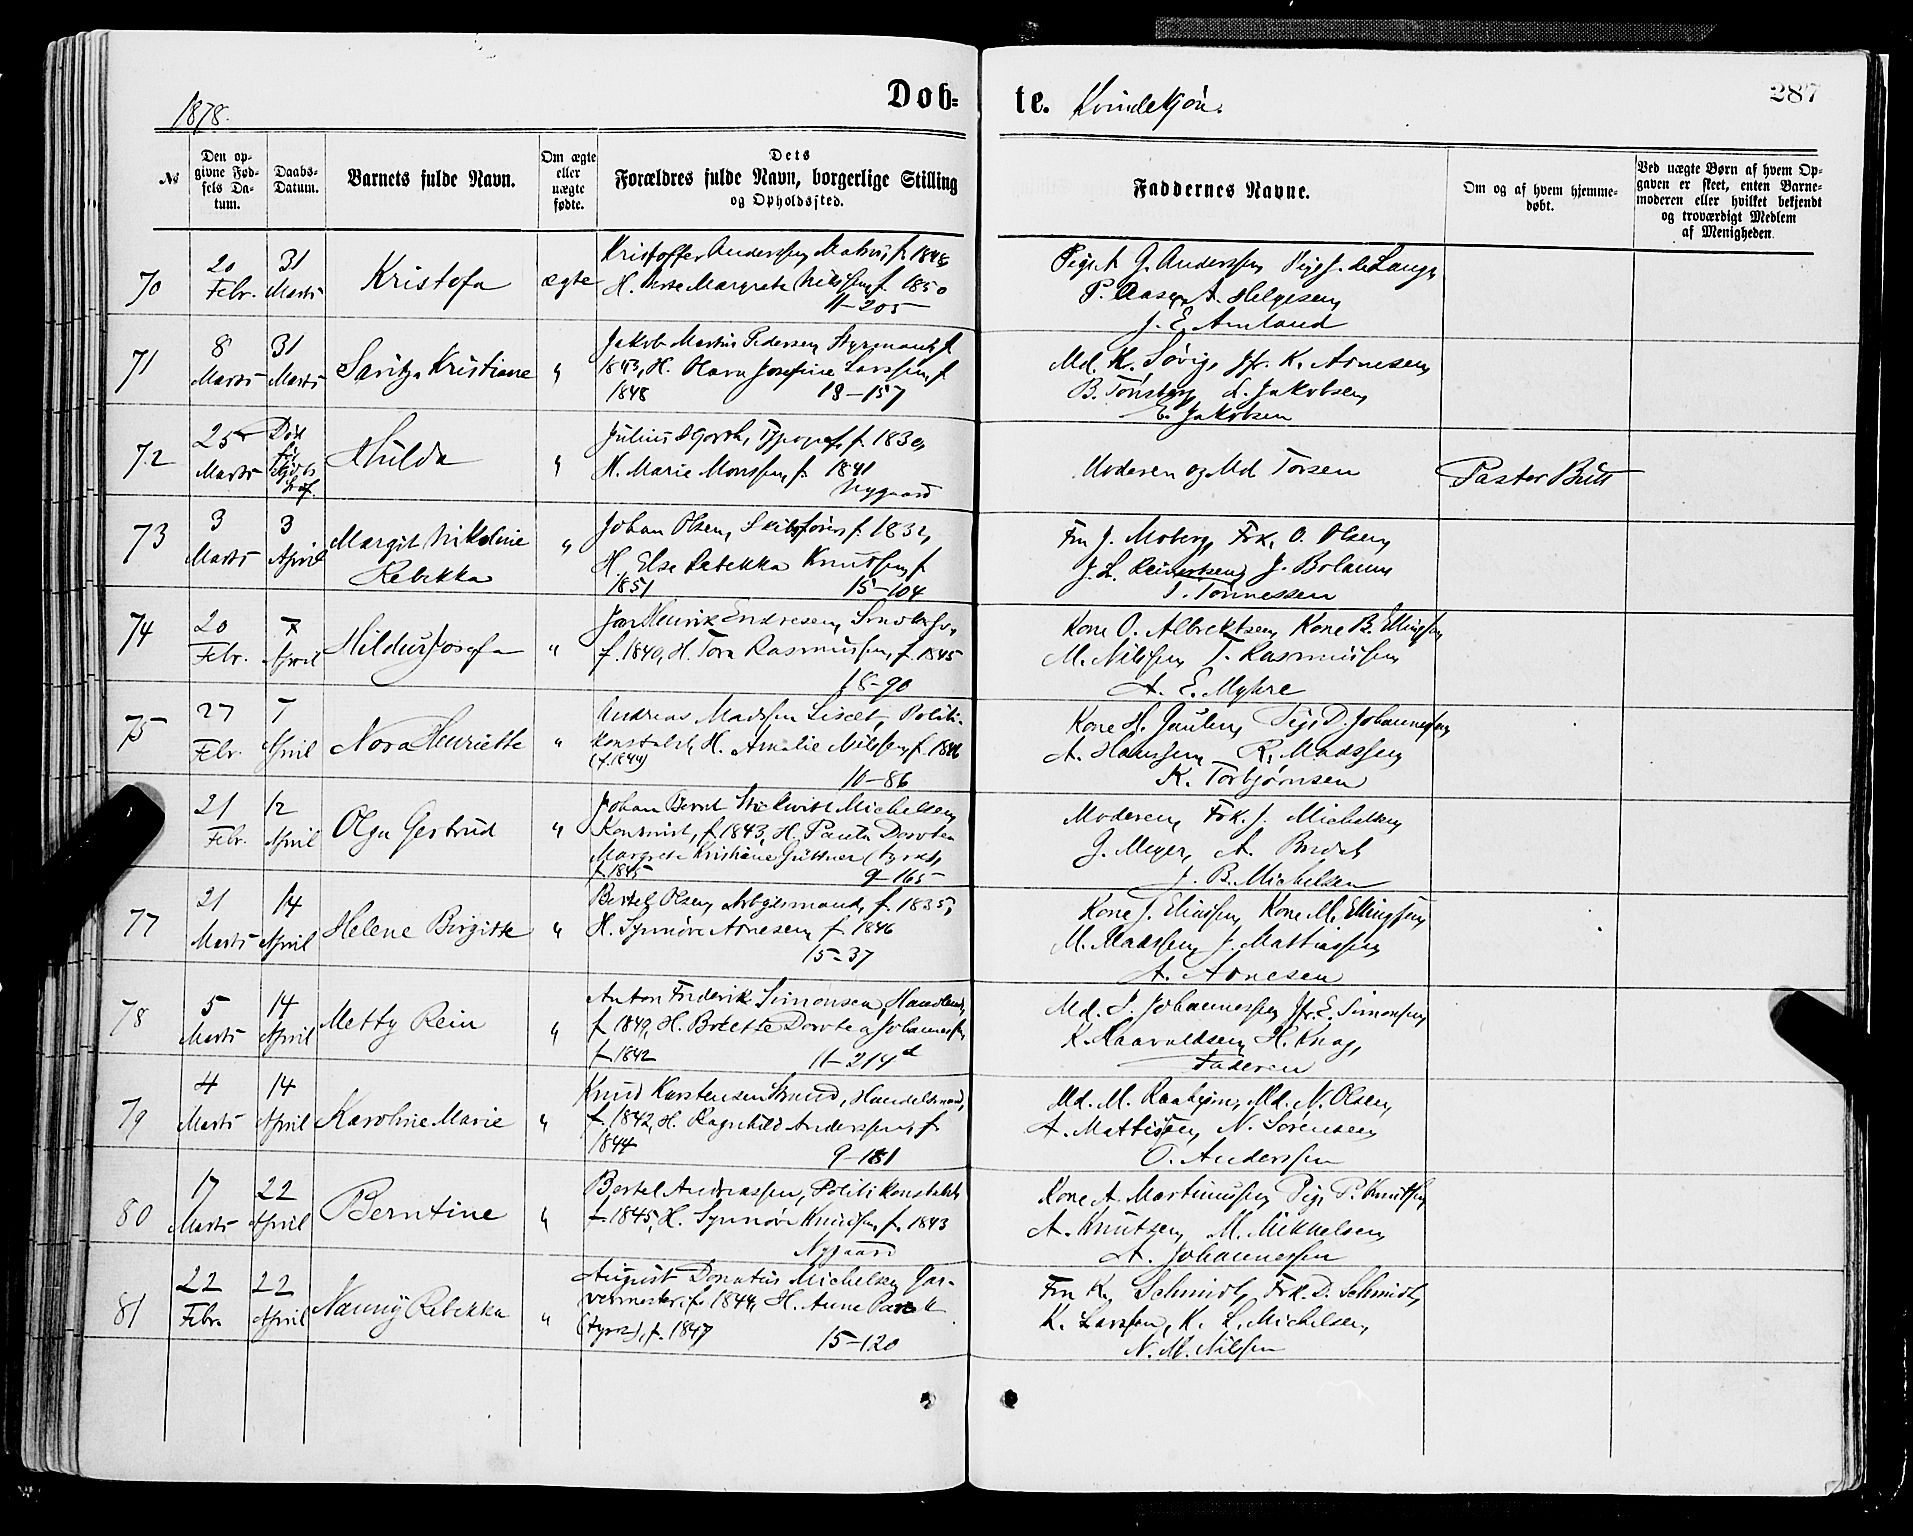 1878.
Døb-
te. Kvindekjøn.
287
№
Den op-
givne Fød-
sels Da-
tum.
Daabs-
Datum.
Barnets fulde Navn.
Om ægte
eller
uægte
fødte.
Dets
Forældres fulde Navn, borgerlige Stilling
og Opholdssted.
Faddernes Navne.
Om og af hvem hjemme-
døbt.
Ved uægte Børn af hvem Op-
gaven er skeet, enten Barne-
moderen eller hvilket bekjendt
og troværdigt Medlem
af Menigheden.
70
20
Febr.
31
Marts
Kristofa
ægte
Kristoffer Anderssen, Matros f. 1848
H. Margrete Nilssen f. 1850
11-205
Pige A. G. Anderssen Pige J. de Lange,
P. Aase, A. Helgesen,
J. E. Amland
71
8
Marts
31
Marts
Kristiane
"
Jakob Martin Pedersen, Styrmand, f.
1843, H. Olava Josefine Larssen, f.
1848 18-157
Md. Kr. Søvig, Jfr. K. Arnesen,
B. Tønsberg, L. Jakobsen,
E. Jakobsen
72
25
Marts
Død
før
Hulda
"
Julius Typograf, f. 1830,
H. Marie Monssen, f. 1841
Nygaard
Moderen og Md Torsen
Pastor Butt
73
3
Marts
3
April
Margit Nikoline
Rebekka
"
Johan Olsen, Skibsfører, f. 1832,
H. Else Rebekka Knutssen, f.
1851 15-104
Fru J. Moberg, Frk. O. Olsen,
J. L. Reinertsen, J. Bolann
T. Tønnessen
74
20
Febr.
7
April
Hildur Josefa
"
Jan Henrik Endresen,
f. 1840, H. Tora Rasmussen, f. 1845
18-90
Kone O. Albrektsen, Kone B. Ellingsen
M. Nilssen, T. Rasmussen
A. E. Myhre
75
27
Febr.
7
April
Nora Henriette
"
Andreas Madssen Liseet, Politi-
konstabel, H. Amalie Nilssen, f. 1846
(f. 1844)
10-86
Kone H. Gaulen, Pige D. Johannessen
A. Hanssen, R. Madssen,
K. Torbjørnsen
21
Febr.
12
April
Olga Gertrud
"
Johan Bernt Michelsen,
f. 1843, H. Paula Dorotea
Margrete Kristiane Güttner (tysk),
f. 1845 9-165
Moderen, Frk. J. Michelsen,
J. Meyer, A. Bredal
J. B. Michelsen
77
21
Marts
14
April
Helene Birgitte
"
Bertel Olsen, Arbeidsmand, f. 1835,
H. Synnøve Arnesen, f. 1846
15-37
Kone J. Eliassen, Kone M. Ellingsen,
M. Madssen, J. Mathiassen,
A. Arnesen
78
5
Marts
14
April
Metty Rein
"
Anton Friderik Simonsen, Handlende,
f. 1849, H. Bolette Dorotea Johannessen,
f. 1842 11-214d
Md. J. Johannessen, Jfr. E. Simonsen,
K. Haavaldsen, H. Knag,
Faderen
79
4
Marts
14
April
Karoline Marie
"
Knud Karstensen Strand, Handelsmand,
f. 1842, H. Ragnhild Anderssen, f.
1844 9-181
Md. M. Raaheim, Md. N. Olsen,
A. Mattissen, N. Sørensen,
O. Anderssen
80
17
Marts
22
April
Berntine
"
Bertel Andreassen, Politikonstabel
f. 1845, H. Synnøve Knudsen, f. 1843
Nygaard
Kone A. Martinussen, Pige P. Knutssen
A. Knutsen, M. Mikkelsen,
A. Johannessen
81
22
Febr.
22
April
Nanny Rebekka
"
August Donatus Michelsen, Gar-
vermester, f. 1844, H. Anne
(tysk), f. 1847 15-120
Fru K. Schmidt, Frk. D. Schmidt,
K. Larssen, K. L. Michelsen,
N. M. Nilssen